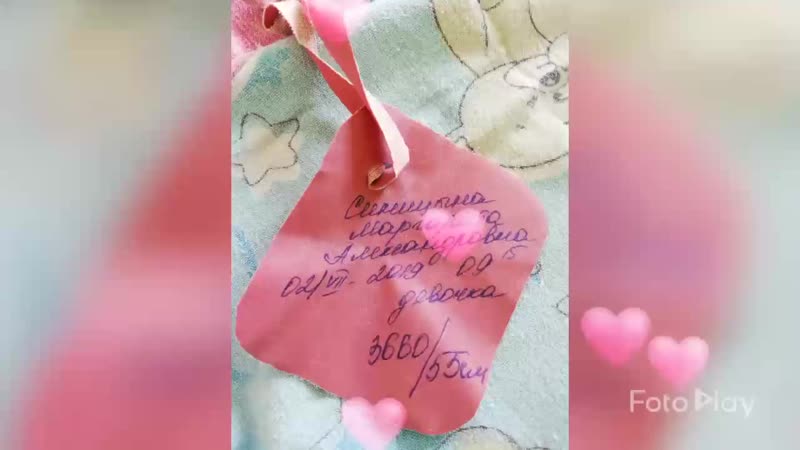 Синицына
Маргарита
Александровна
02/VII-2019 09 15
девочка
3660/55см
FotoPlay